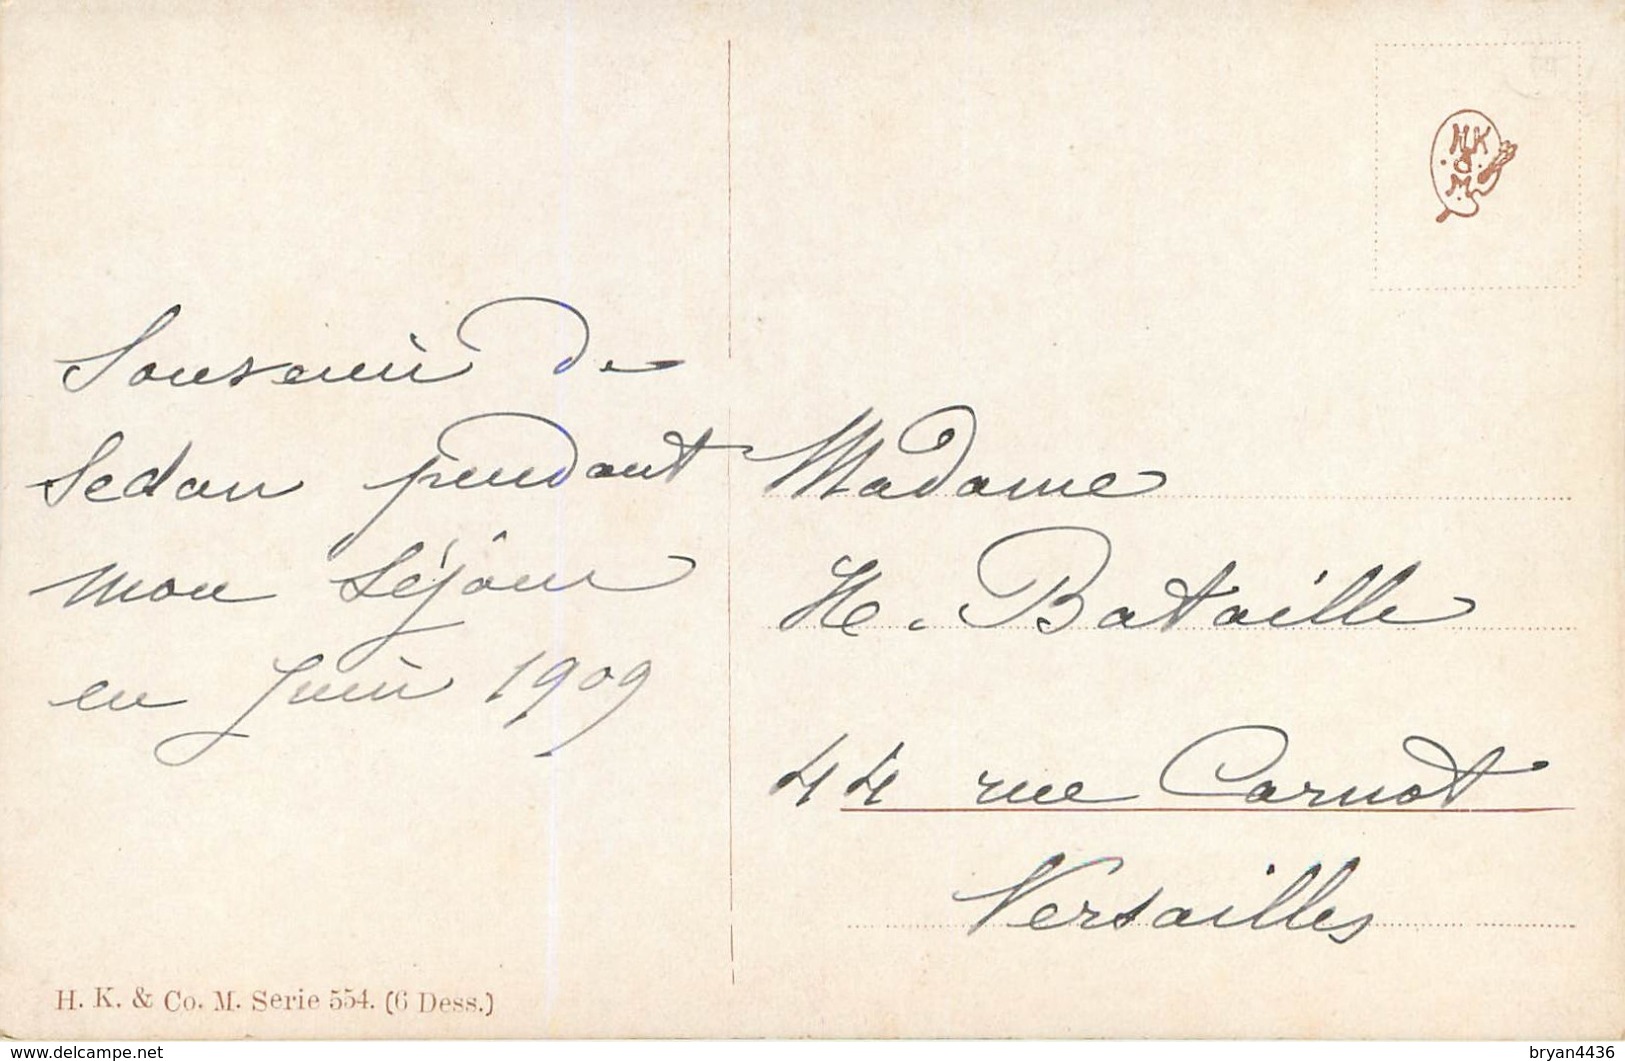 Souvenir de
Sedan pendant
mon séjôur
en Juin 1909
H K
& C.
M.
Madame
H. Bataille
44 rue Carnot
Versailles
H. K. & Co. M. Serie 554. (6 Dess.)
www.delcampe.net
bryan4436